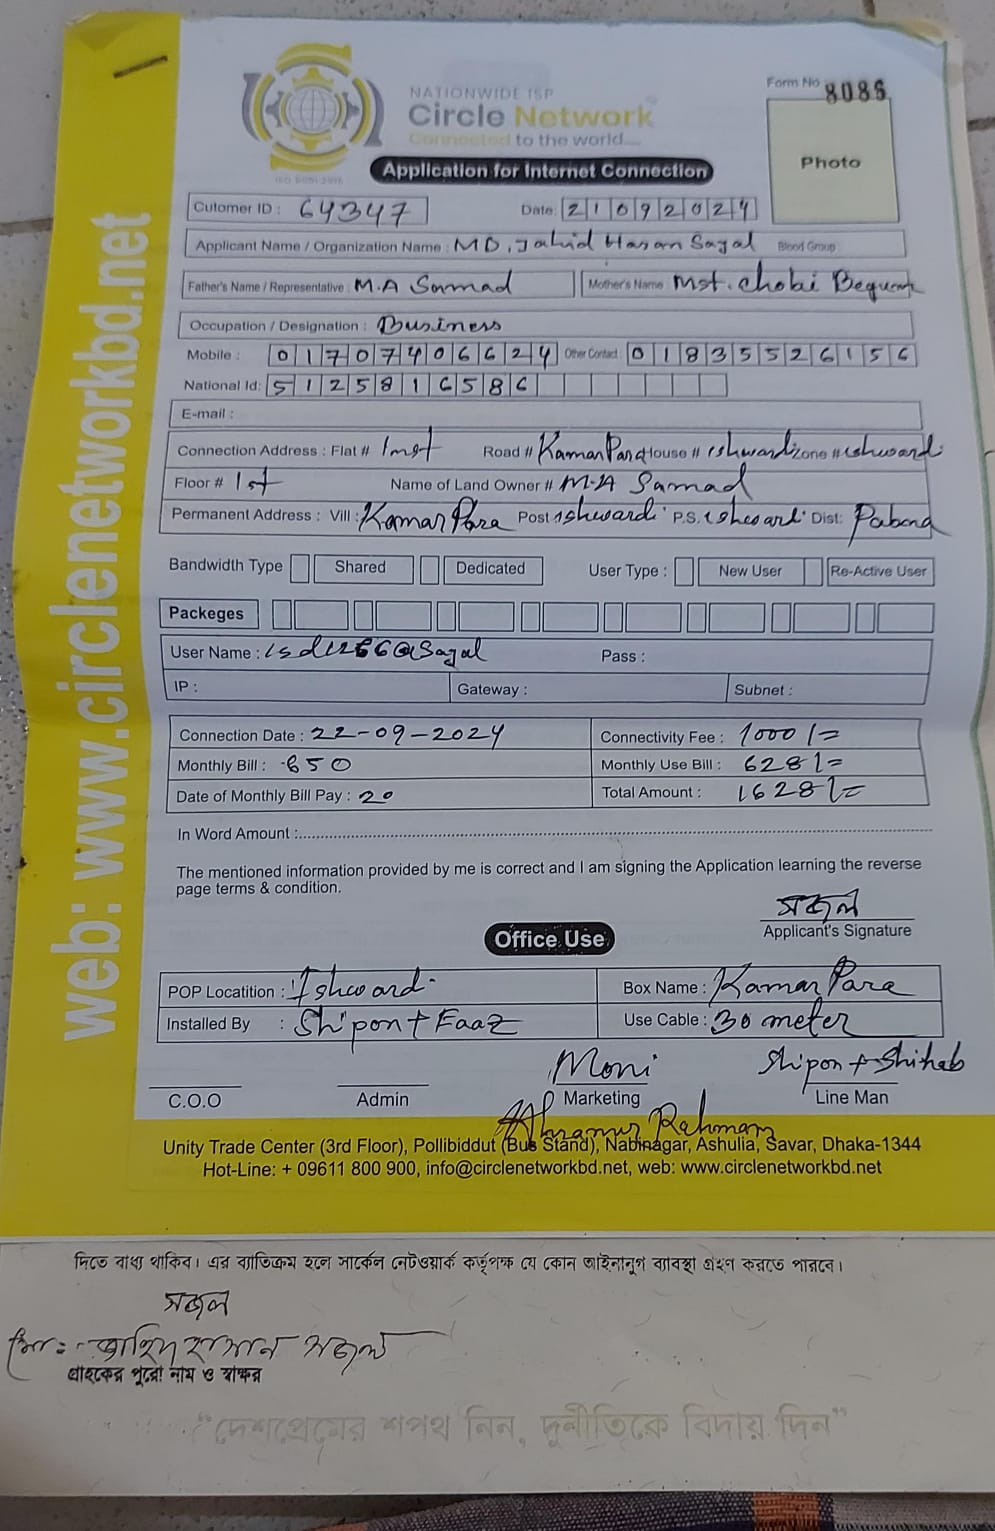 web: www.circlenetworkbd.net
NATIONWIDE ISP
Circle Network
Connected to the world....
Form No 8086
Photo
ISO 9001:2015
Application for Internet Connection
Cutomer ID : 64347 Date: 21092024
Applicant Name / Organization Name : MD. Jahid Hasan Sajal Blood Group :
Father's Name / Representative : M.A Samad Mother's Name : Mst. Chobi Begum
Occupation / Designation : Business
Mobile : 01707406624 Other Contact : 01835526156
National Id: 5125816586
E-mail :
Connection Address : Flat # Road # Kamar Para House # Ishwardi Zone # Ishwardi
Floor # 1st Name of Land Owner # M.A Samad
Permanent Address : Vill : Kamar Para Post Ishwardi P.S. Ishwardi Dist: Pabna
Bandwidth Type Shared Dedicated User Type : New User Re-Active User
Packeges
User Name : Pass :
IP : Gateway : Subnet :
Connection Date : 22-09-2024 Connectivity Fee : 1000/=
Monthly Bill : 650 Monthly Use Bill : 628/=
Date of Monthly Bill Pay : 20 Total Amount : 1628/=
In Word Amount :
The mentioned information provided by me is correct and I am signing the Application learning the reverse
page terms & condition.
সজল
Applicant's Signature
Office Use
POP Locatition : Ishwardi Box Name : Kamar Para
Installed By : Shipon + Faaz Use Cable : 30 meter
Moni Shipon + Shihab
C.O.O Admin Marketing Line Man
Rahman
Unity Trade Center (3rd Floor), Pollibiddut (Bus Stand), Nabinagar, Ashulia, Savar, Dhaka-1344
Hot-Line: + 09611 800 900, info@circlenetworkbd.net, web: www.circlenetworkbd.net
দিতে বাধ্য থাকিব। এর ব্যতিক্রম হলে সার্কেল নেটওয়ার্ক কর্তৃপক্ষ যে কোন আইনানুগ ব্যবস্থা গ্রহণ করতে পারবে।
সজল
মোঃ জাহিদ হাসান সজল
গ্রাহকের পুরো নাম ও স্বাক্ষর
"দেশপ্রেমের শপথ নিন, দুর্নীতিকে বিদায় দিন"